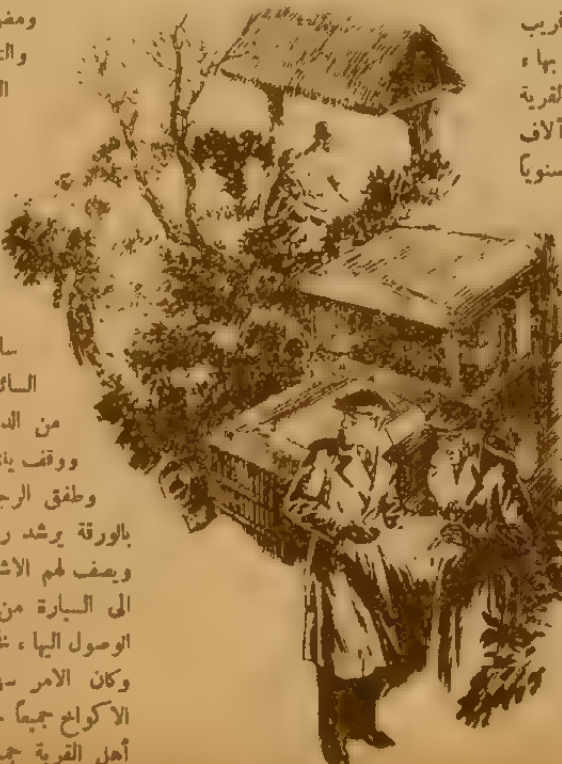 قريب
بها ،
القرية
آلاف
سنوياً
ومفر
والت
ال
سا
السائ
من الد
ووقف ين
وطفق الرج
بالورقة يرشد ر
ويصف لهم الاش
الى السيارة من
الوصول اليها ،
وكان الامر
الاكواخ جميعاً
أهل القرية جم